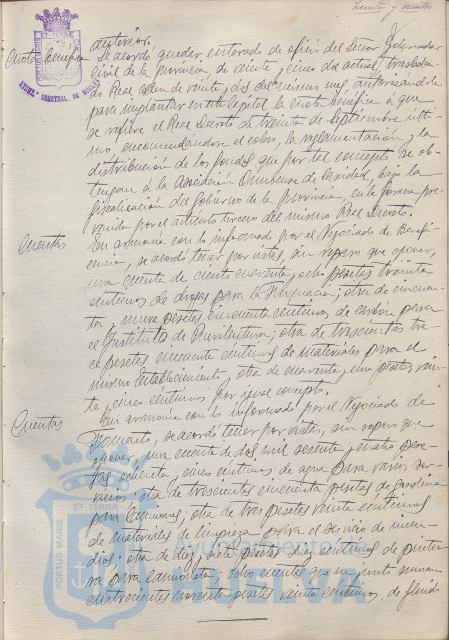 treinta y cuatro
anterior.
Cuota benéfica
Se acordó quedar enterado de oficio del Señor Gobernador
civil de la provincia, de veinte y cinco de actual, trasladan-
do Real orden de veinte y dos del mismo mes autorizando
para implantar en esta Capital la cuota benéfica a que
se refiere el Real Decreto de treinta de Septiembre últi-
mo encomendandose el cobro, la reglamentación y la
distribución de los fondos que por tal concepto se ob-
tengan á la Asociación Onubense de Caridad bajo la
fiscalización del Gobierno de la provincia, en la forma pre-
venida por el artículo tercero del mismo Real Decreto.
Cuentas
En armonia con lo informado por el Negociado de Benefi-
cencia, se acordó tener por vistas, sin reparo que oponer,
una cuenta de ciento cuarenta y ocho pesetas treinta
céntimos de drogas para la Farmacia; otra de cincuen-
ta y nueve pesetas cincuenta céntimos de carbón para
el Instituto de Puericultura; otra de trescientas tre-
ce pesetas cincuenta céntimos de materiales para el
mismo Establecimiento y otra de cuarenta y una pesetas vein-
te y cinco céntimos por igual concepto.
Cuentas
En armonia con lo informado por el Negociado de
Fomento, se acordó tener por vistas, sin reparo que
oponer, una cuenta de dos mil sesenta y cuatro pese-
tas ochenta y cinco céntimos de agua para varios ser-
vicios; otra de trescientas cincuenta pesetas de gasolina
para camiones; otra de tres pesetas veinte céntimos
de materiales de limpieza para el servicio de incen-
dios; otra de diez y seis pesetas diez céntimos de pintu-
ra para camioneta; ocho cuentas que en junto suman
cuatrocientas noventa pesetas veinte céntimos, de fluido
PORTUS MARIS
ET TERRÆ
Ayuntamiento de
HUELVA